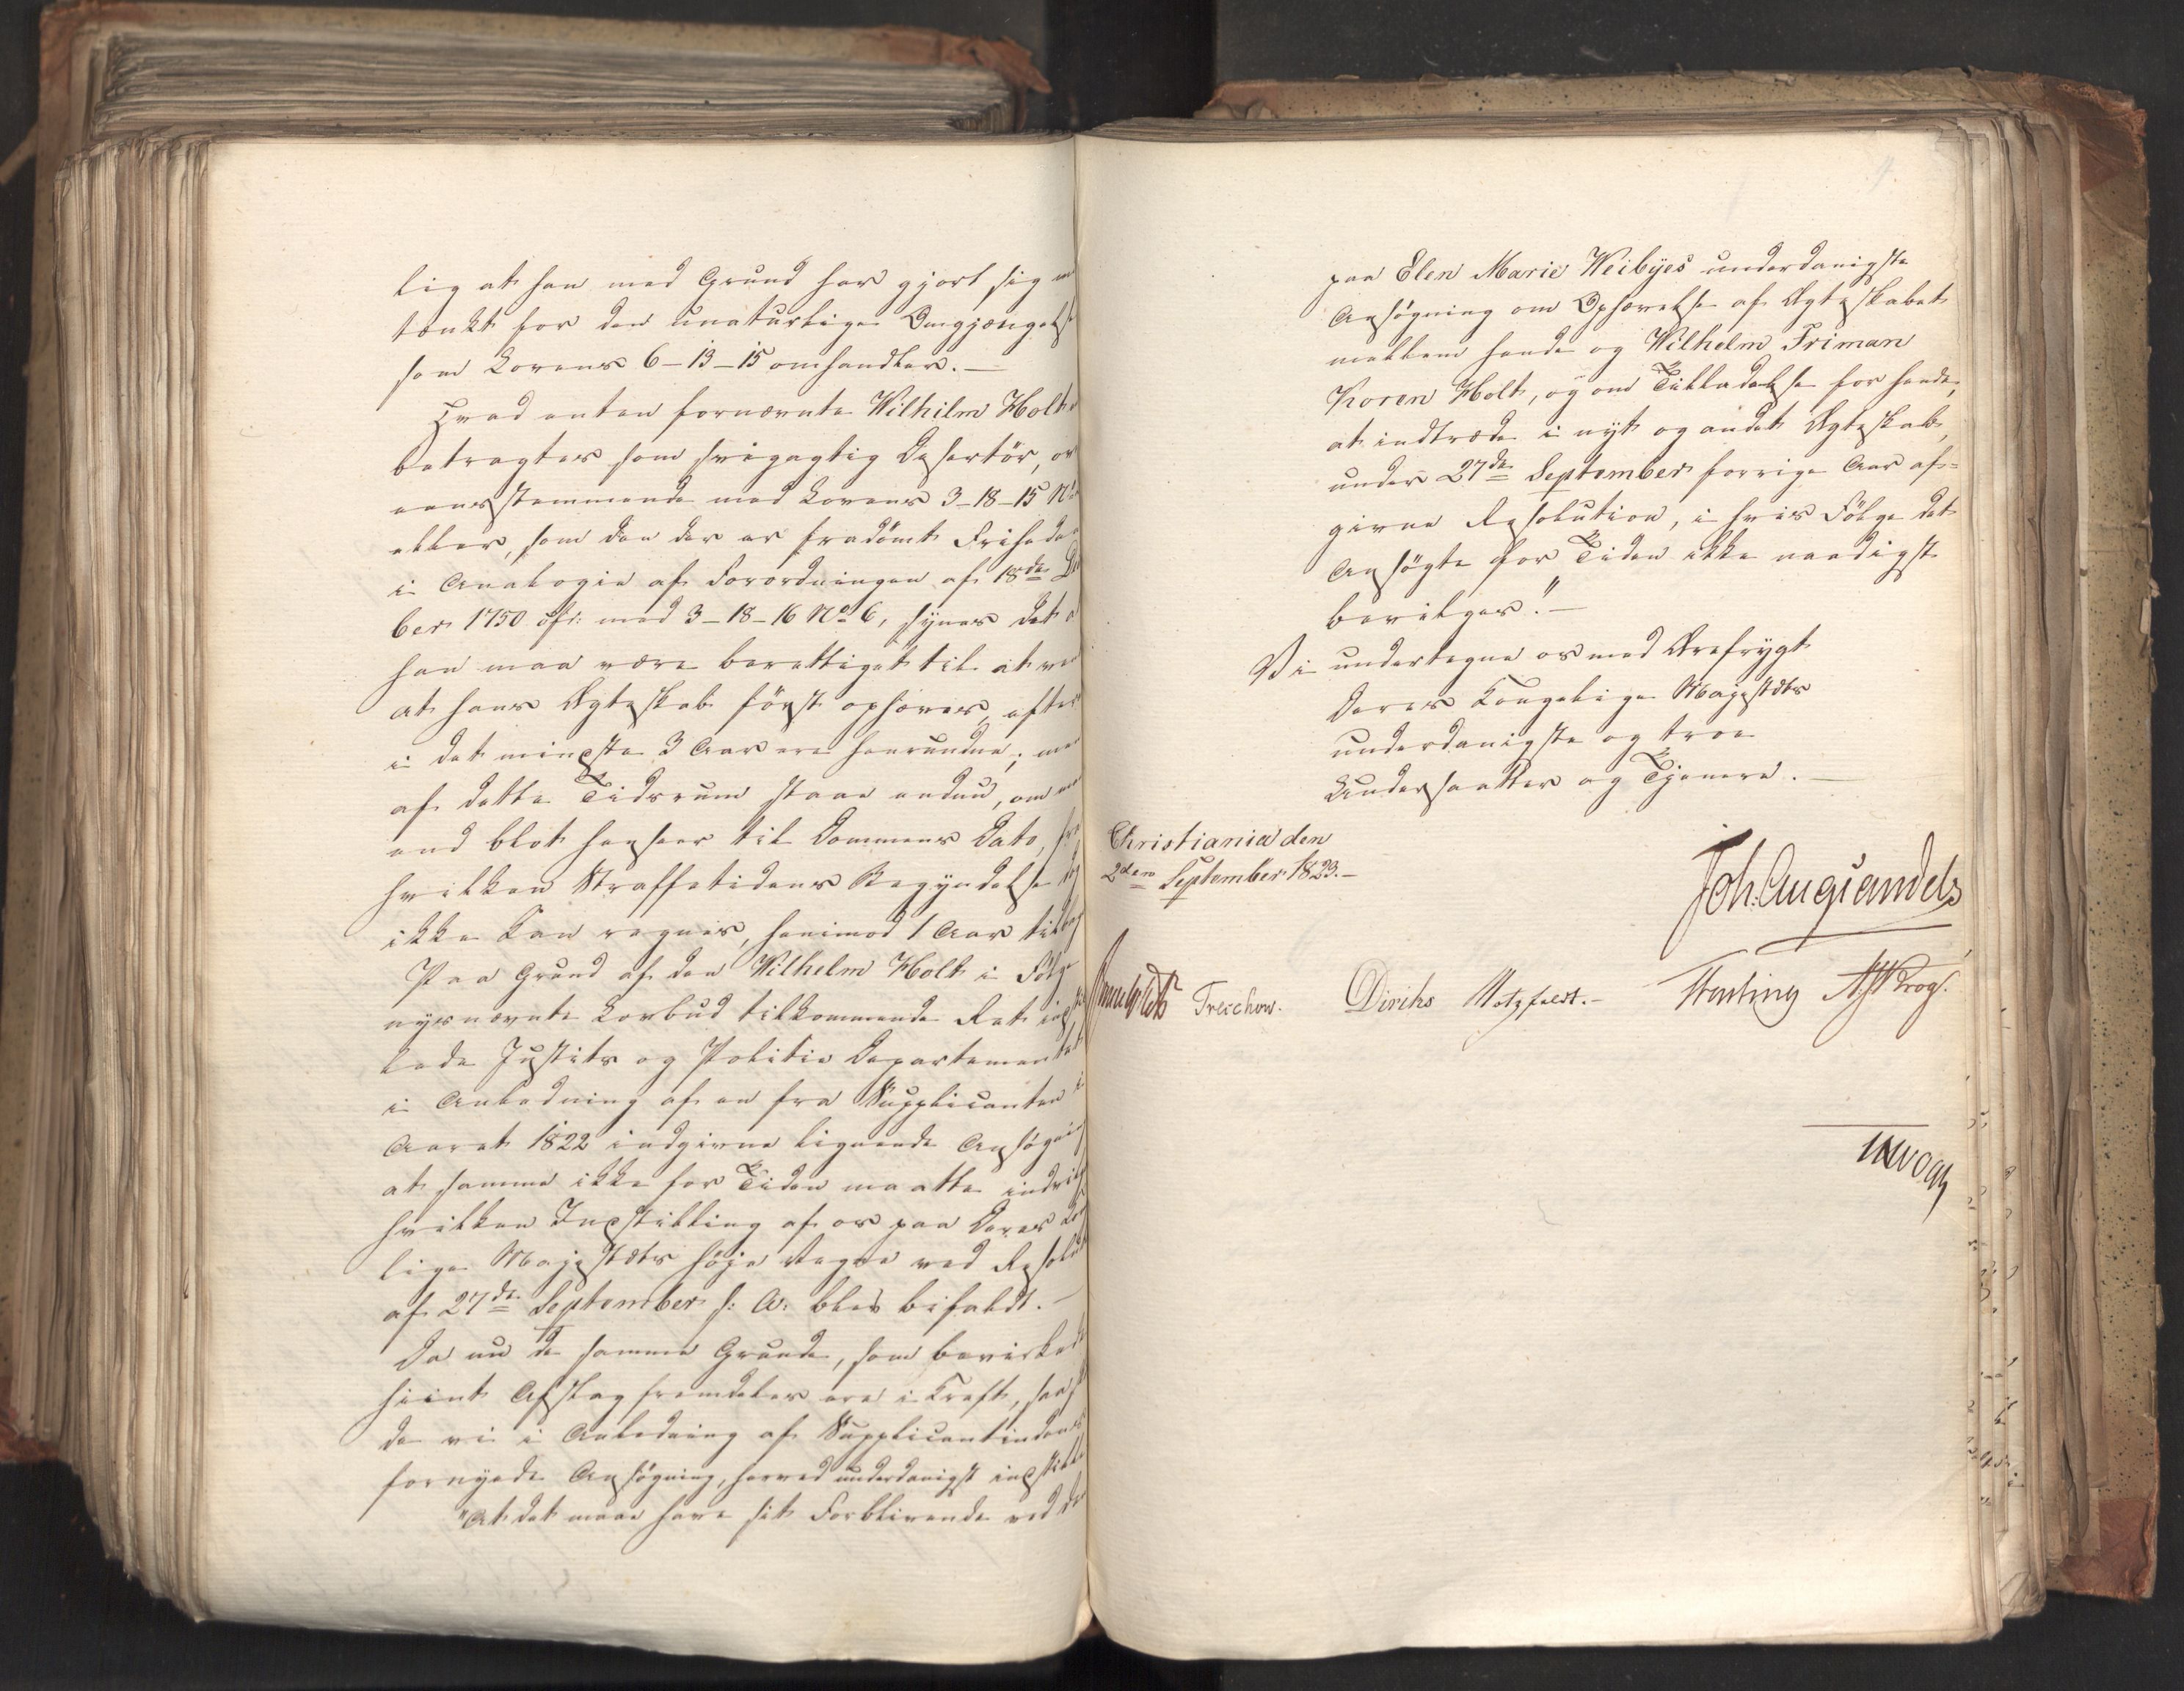 lig at han med Grund har gjort sig
tænkt for den unaturlige Omgjængelse
som Lovens 6-13-15 omhandler.-
Hvad enten fornævnte Wilhilm Holt
betragtes som svigagtig Desertör, ov
eensstemmende med Lovens 3-18-15 No
eller, som den der er fradömt Friheden
i Analogie af Forordningen af 18de De
ber 1750 cfr: med 3-18-16 No 6, synes det
han maa være berettiget til at
at hans Ægteskab först ophæves, efter
i det mindste 3 Aar ere henrundne; men
af dette Tidsrum staae endnu, om
end blot hensees til Dommens Dato, fra
hvilken Straffetidens Begyndelse dog
ikke kan regnes, henimod 1 Aar tilbage
Paa Grund af den Wilhelm Holt i Fölge
nysnævnte Lovbud tilkommende Ret indstil
lede Justits og Politie Departementet
i Anledning af en fra Supplicanten i
Aaret 1822 indgiven lignende Ansögning
at samme ikke for Tiden maatte indvil
hvilken Indstilling af os paa Deres Konge
lige Majestæts höje Vegne ved Resolut
af 27de September s: A: blev bifaldt.-
Da nu de samme Grunde, som bevirkede
hiint Afslag fremdeles ere i Kraft, saa
de vi i Anledning af Supplicantindens
fornyede Ansögning, herved underdanigst indstille
"At det maae have sit Forblivende ved den
paa Elen Marie Weibyes underdanigste
Ansögning om Ophævelse af Ægteskabet
mellem hende og Wilhelm Friman
Koren Holt, og om Tilladelse for hende,
at indtræde i nyt og andet Ægteskab,
under 27de September forrige Aar af=
givne Resolution, i hvis Fölge det
Ansögte for Tiden ikke naadigst
bevilges."-
Vi undertegne os med Ærefrygt
Deres Kongelige Majestæts
underdanigste og troe
Undersaatter og Tjenere.-
Christiania den
2den September 1823.-
Joh: Aug Sandels
Treschow. Diriks Motzfeldt.- Krog.